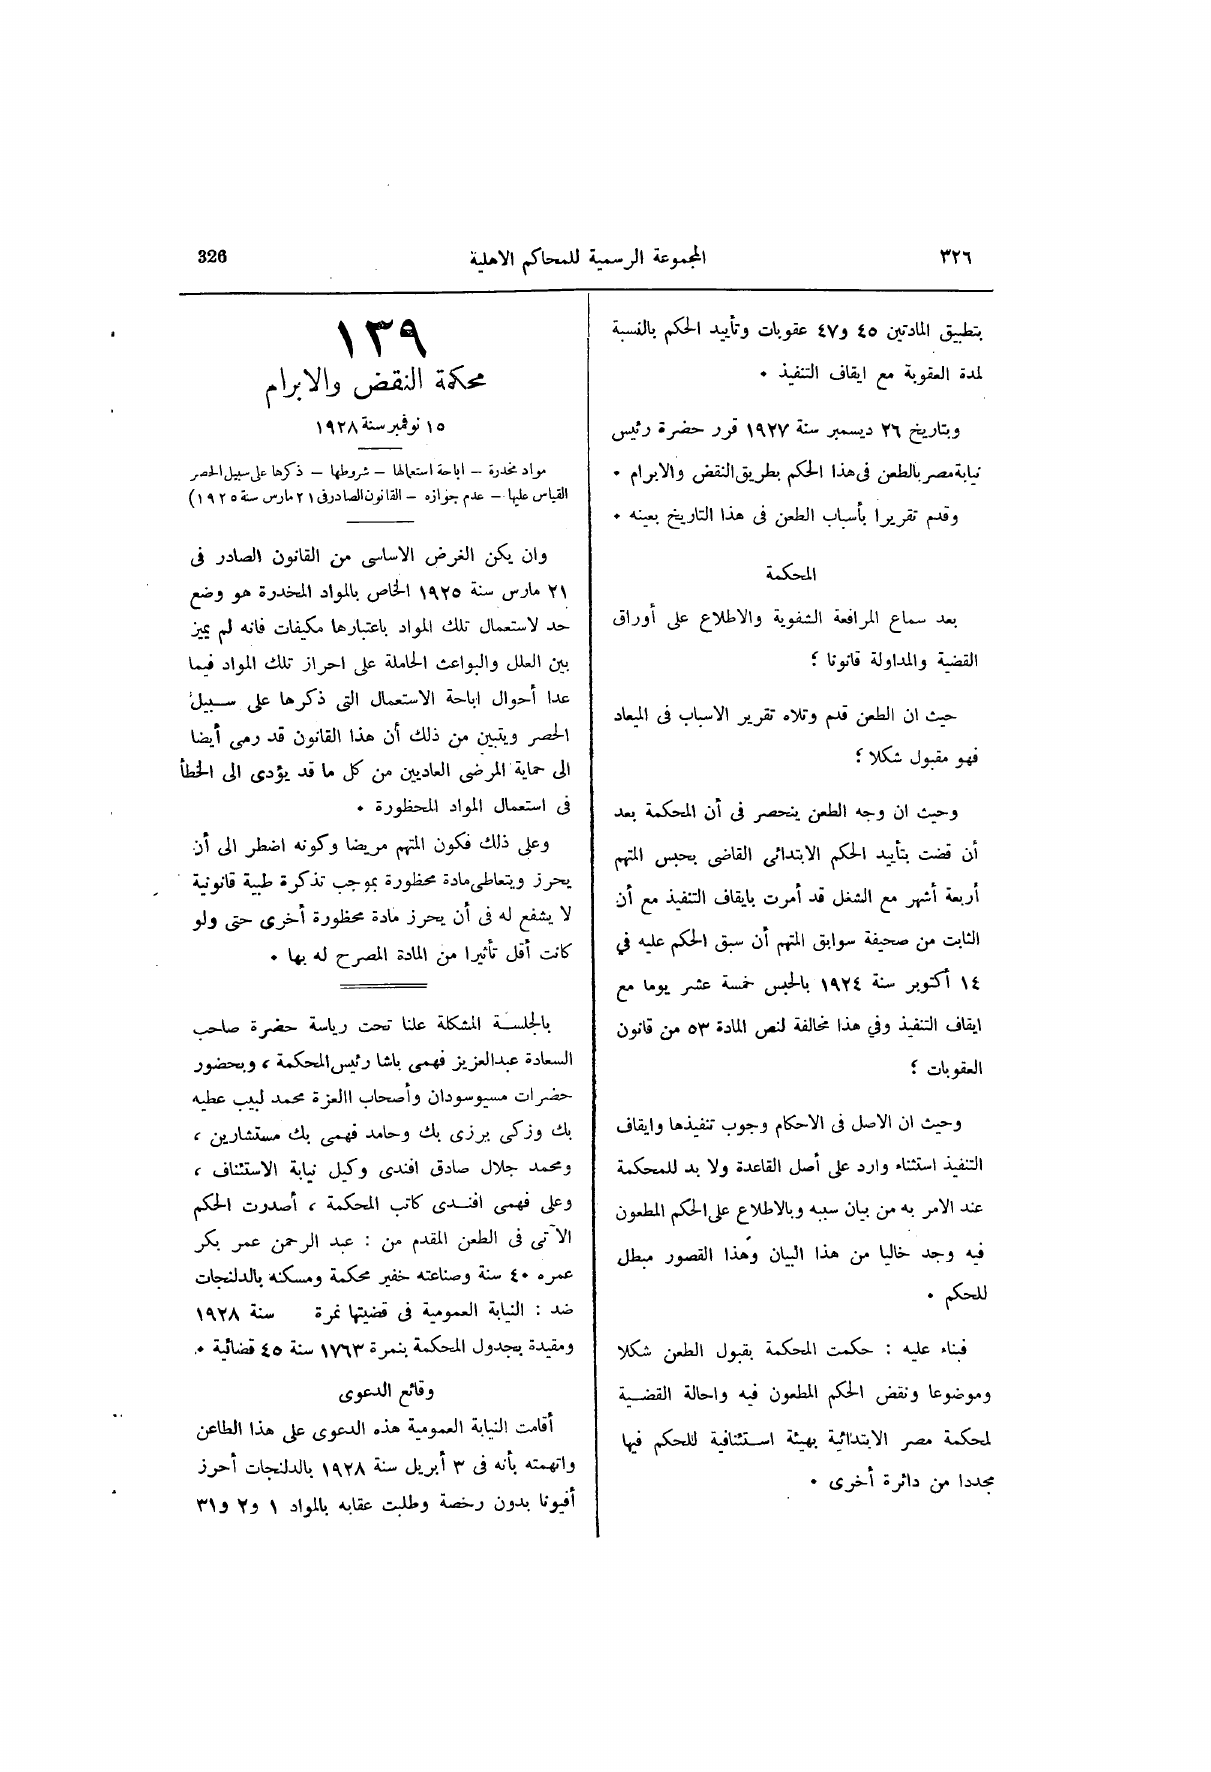 ٣٢٦ المجموعة الرسمية للمحاكم الاهلية 326
بتطبيق المادتين ٤٥ و٤٧ عقوبات وتأييد الحكم بالنسبة
لمدة العقوبة مع ايقاف التنفيذ .
وبتاريخ ٢٦ ديسمبر سنة ١٩٢٧ قرر حضرة رئيس
نيابة مصر بالطعن فى هذا الحكم بطريق النقض والابرام .
وقدم تقريرا بأسباب الطعن فى هذا التاريخ بعينه .
المحكمة
بعد سماع المرافعة الشفوية والاطلاع على أوراق
القضية والمداولة قانونا ؛
حيث ان الطعن قدم وتلاه تقرير الاسباب فى الميعاد
فهو مقبول شكلا ؛
وحيث ان وجه الطعن ينحصر فى أن المحكمة بعد
أن قضت بتأييد الحكم الابتدائى القاضى بحبس المتهم
أربعة أشهر مع الشغل قد أمرت بايقاف التنفيذ مع أن
الثابت من صحيفة سوابق المتهم أن سبق الحكم عليه في
١٤ أكتوبر سنة ١٩٢٤ بالحبس خمسة عشر يوما مع
ايقاف التنفيذ وفي هذا مخالفة لنص المادة ٥٣ من قانون
العقوبات ؛
وحيث ان الاصل فى الاحكام وجوب تنفيذها وايقاف
التنفيذ استثناء وارد على أصل القاعدة ولا بد للمحكمة
عند الامر به من بيان سببه وبالاطلاع على الحكم المطعون
فيه وجد خاليا من هذا البيان وهذا القصور مبطل
للحكم .
فبناء عليه : حكمت المحكمة بقبول الطعن شكلا
وموضوعا ونقض الحكم المطعون فيه واحالة القضية
لمحكمة مصر الابتدائية بهيئة استئنافية للحكم فيها
مجددا من دائرة أخرى .
١٣٩
محكمة النقض والابرام
١٥ نوفمبر سنة ١٩٢٨
مواد مخدرة – اباحة استعمالها – شروطها – ذكرها على سبيل الحصر
القياس عليها – عدم جوازه – القانون الصادر فى ٢١ مارس سنة ١٩٢٥)
وان يكن الغرض الاساسى من القانون الصادر فى
٢١ مارس سنة ١٩٢٥ الخاص بالمواد المخدرة هو وضع
حد لاستعمال تلك المواد باعتبارها مكيفات فانه لم يميز
بين العلل والبواعث الحاملة على احراز تلك المواد فيما
عدا أحوال اباحة الاستعمال التى ذكرها على سبيل
الحصر ويتبين من ذلك أن هذا القانون قد رمى أيضا
الى حماية المرضى العاديين من كل ما قد يؤدى الى الخطأ
فى استعمال المواد المحظورة .
وعلى ذلك فكون المتهم مريضا وكونه اضطر الى أن
يحرز ويتعاطى مادة محظورة بموجب تذكرة طبية قانونية
لا يشفع له فى أن يحرز مادة محظورة أخرى حتى ولو
كانت أقل تأثيرا من المادة المصرح له بها .
بالجلسة المشكلة علنا تحت رياسة حضرة صاحب
السعادة عبدالعزيز فهمى باشا رئيس المحكمة ، وبحضور
حضرات مسيوسودان وأصحاب االعزة محمد لبيب عطيه
بك وزكى برزى بك وحامد فهمى بك مستشارين ،
ومحمد جلال صادق افندى وكيل نيابة الاستئناف ،
وعلى فهمى افندى كاتب المحكمة ، أصدرت الحكم
الآتى فى الطعن المقدم من : عبد الرحمن عمر بكر
عمره ٤٠ سنة وصناعته خفير محكمة ومسكنه بالدلنجات
ضد : النيابة العمومية فى قضيتها نمرة سنة ١٩٢٨
ومقيدة بجدول المحكمة بنمرة ١٧٦٣ سنة ٤٥ قضائية .
وقائع الدعوى
أقامت النيابة العمومية هذه الدعوى على هذا الطاعن
واتهمته بأنه فى ٣ أبريل سنة ١٩٢٨ بالدلنجات أحرز
أفيونا بدون رخصة وطلبت عقابه بالمواد ١ و٢ و٣١